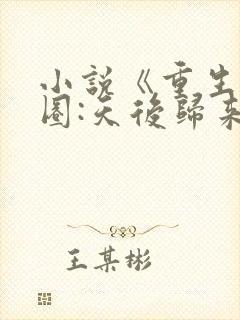 小說《重生
圈:天後歸來
王某彬